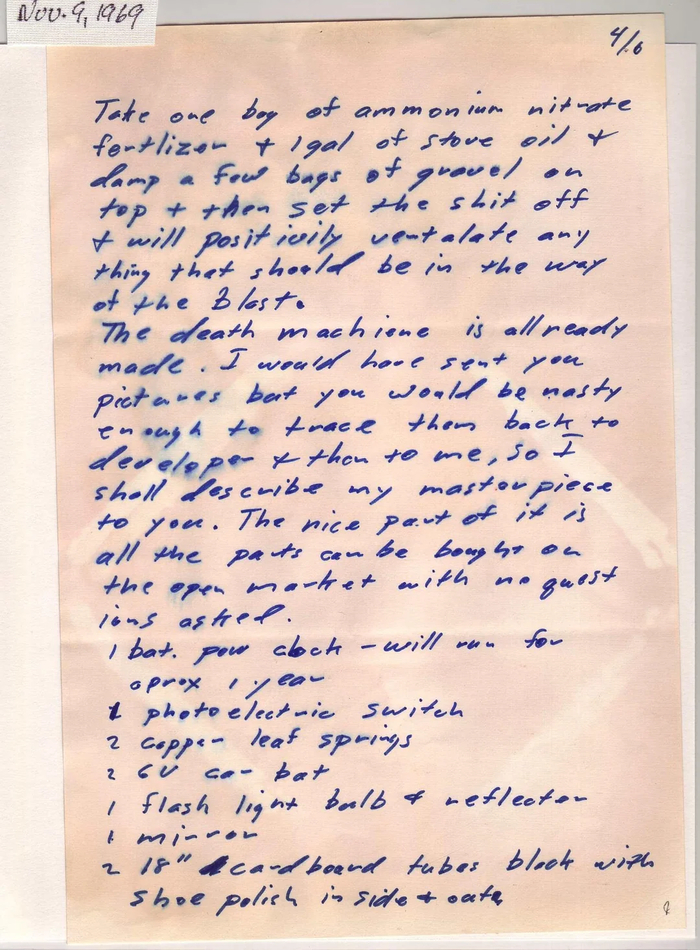 Nov. 9, 1969
4/6
Take one bag of ammonium nitrate
fertlizer + 1 gal of stove oil +
dump a few bags of gravel on
top + then set the shit off
+ will positivily ventalate any
thing that should be in the way
of the Blast.
The death machiene is all ready
made. I would have sent you
pictures but you would be nasty
enough to trace them back to
developer + then to me, so I
shall describe my masterpiece
to you. The nice part of it is
all the parts can be bought on
the open market with no quest
ions asked.
1 bat. pow clock - will run for
aprox 1 year
1 photoelectric switch
2 copper leaf springs
2 6V car bat
1 flash light bulb + reflector
1 mirror
2 18" cardboard tubes black with
shoe polish in side + oute